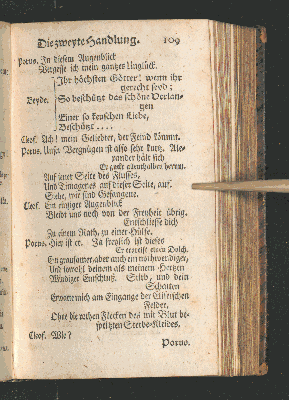 Die zweyte Handlung. 109
Porus. In diesem Augenblick
Vergesse ich mein gantzes Unglück.
Ihr höchsten Götter! wenn ihr
gerecht seyd;
Beyde. So beschützt das schöne Verlan-
gen
Einer so keuschen Liebe,
Beschützt ....
Cleof. Ach! mein Geliebter, der Feind kömmt.
Porus. Unser Vergnügen ist also sehr kurtz. Ale-
xander hält sich
Er geckt allenthalben herum.
Auf einer Seite des Flusses,
Und Timagenes auf dieser Seite, auf.
Sehe, wir sind Gefangene.
Cleof. Ein eintziger Augenblick
Bleibt uns noch von der Freyheit übrig.
Entschliesse dich
Zu einem Rath, zu einer Hülfe.
Porus. Hier ist er. Ja freylich ist dieses
Er ergreift einen Dolch.
Ein grausamer, aber auch ein nothwendiger,
Und sowohl deinem als meinem Hertzen
Würdiger Entschluß. Stirb, und dein
Schatten
Erwarte mich am Eingange der Elisischen
Felder,
Ohne die rothen Flecken des mit Blut be-
spritzten Sterbe-Kleides.
Cleof. Wie?
Porus.